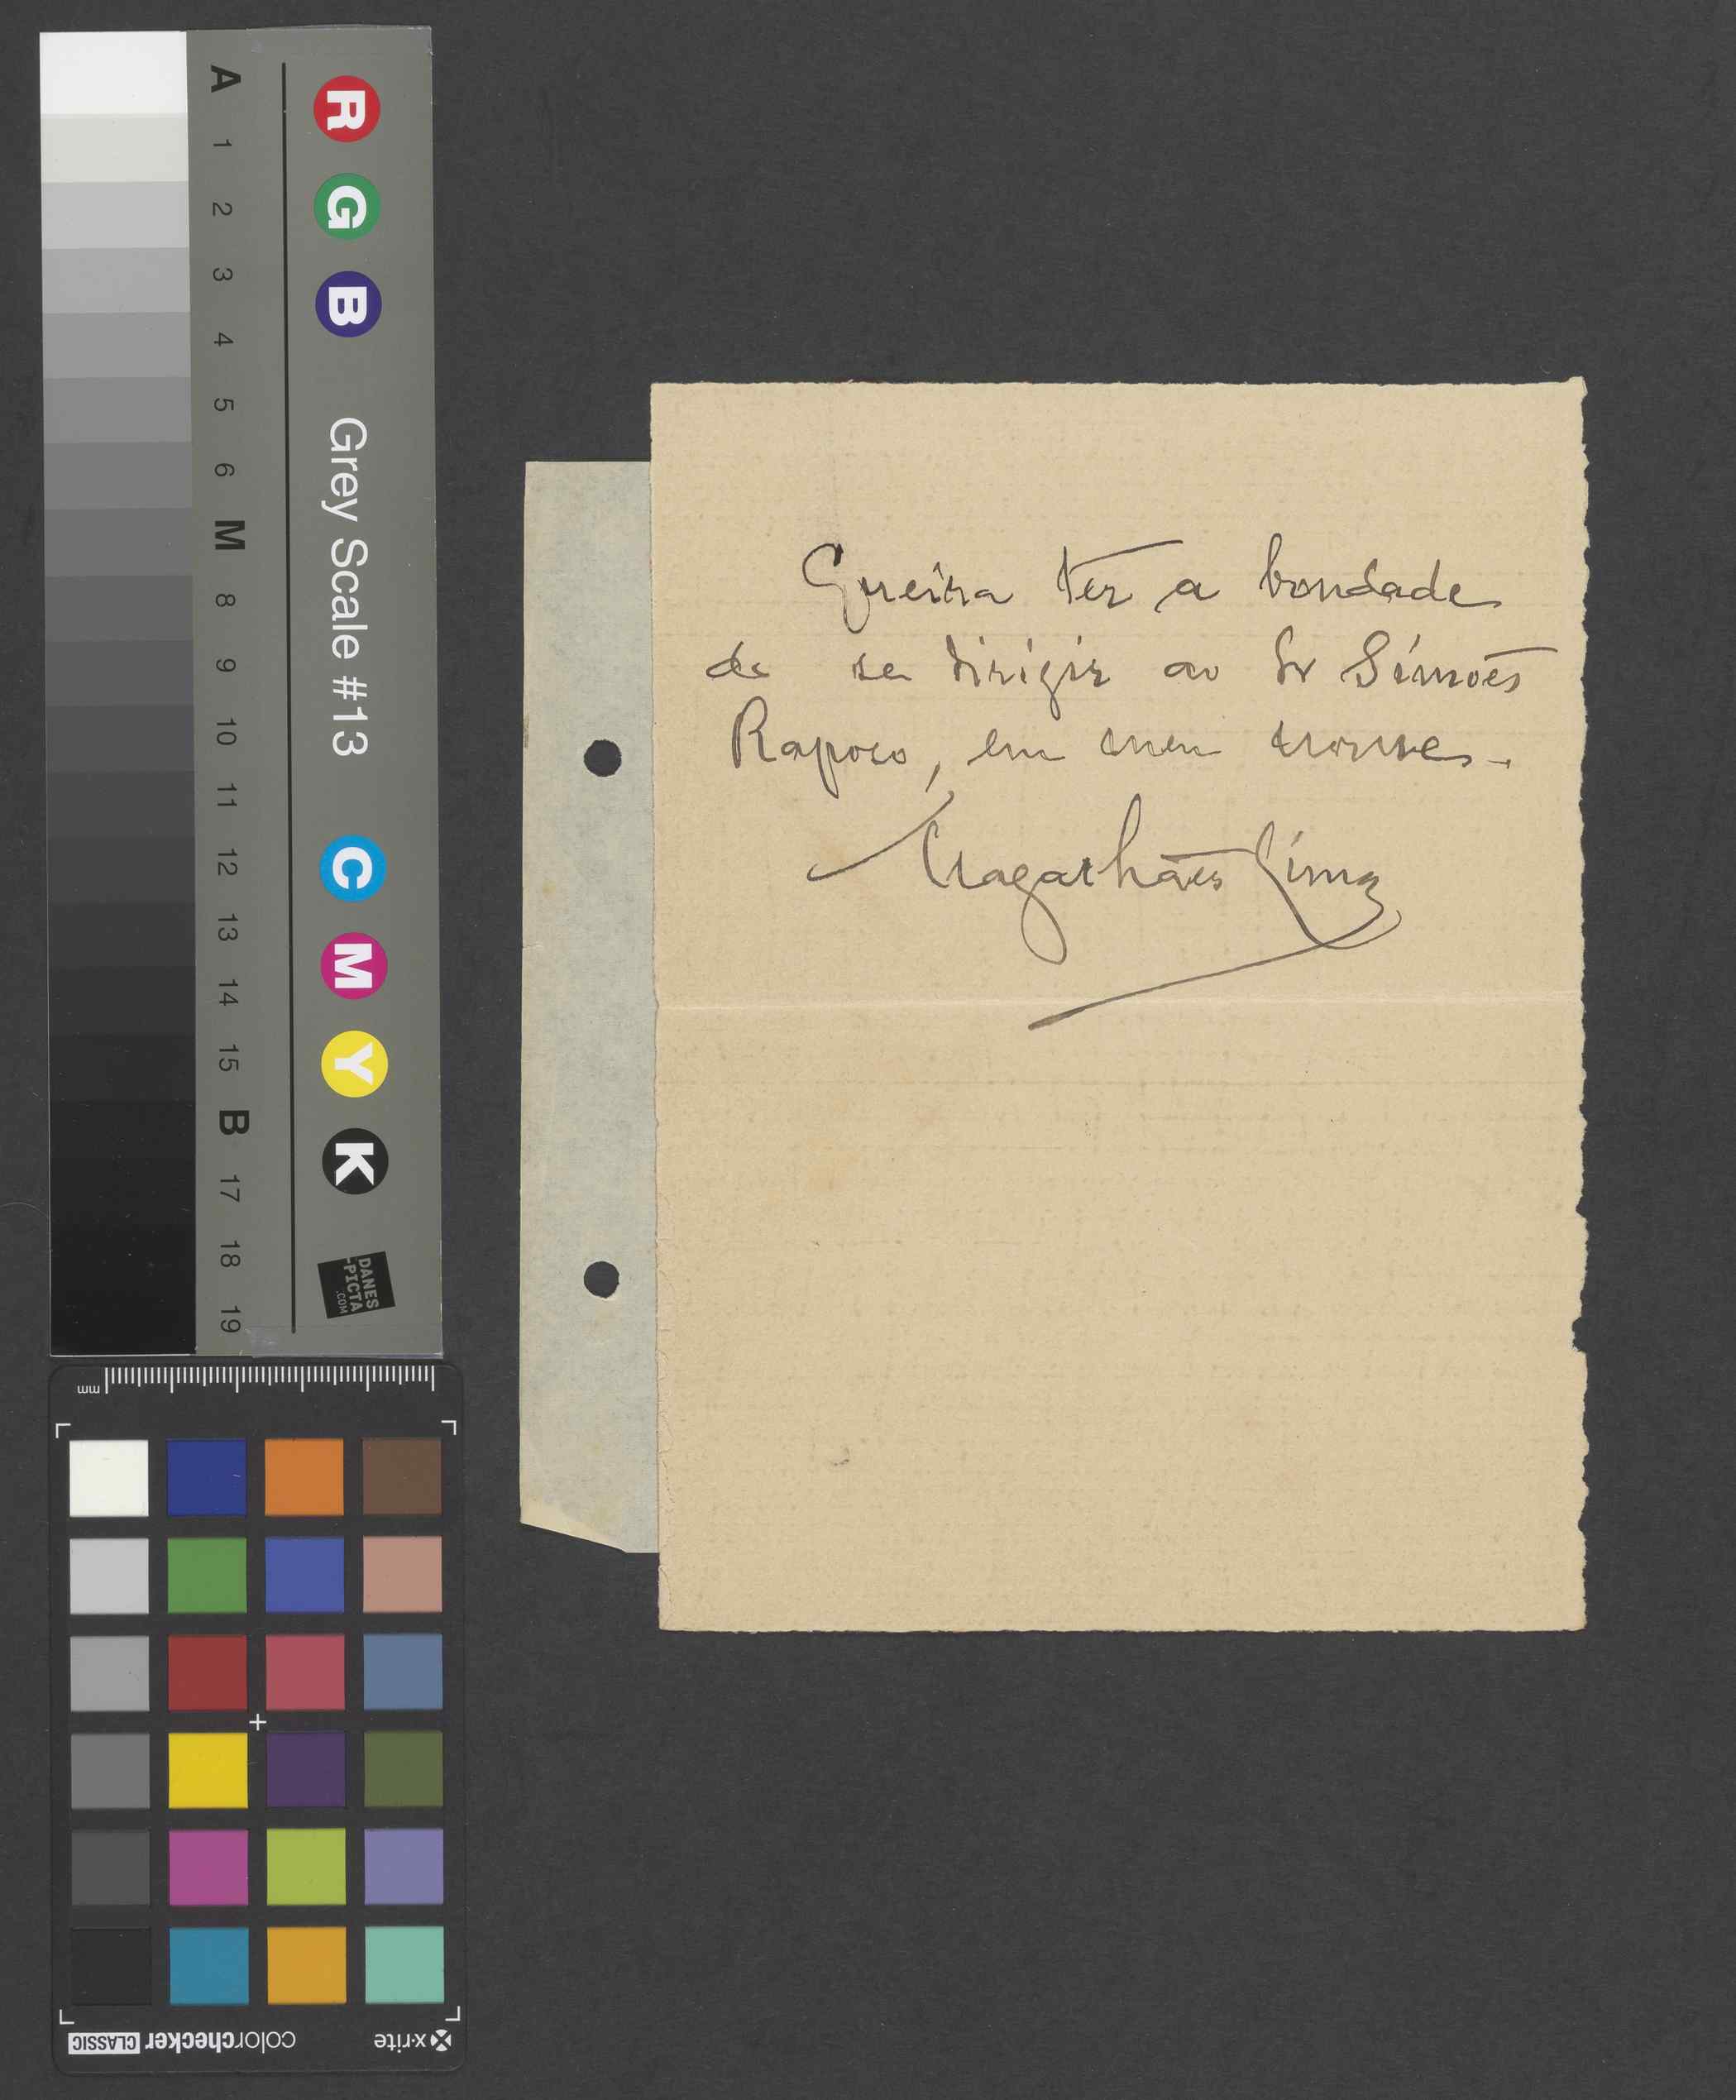 Queira ter a bondade
de se dirigir ao Sr Simões
Raposo, em meu nome.
Magalhães Lima
A
1
2
3
4
5
6
M
8
9
10
11
12
13
14
15
B
17
18
19
R G B Grey Scale #13 C M Y K
DANES
-PICTA
.COM
mm
x·rite
colorchecker CLASSIC